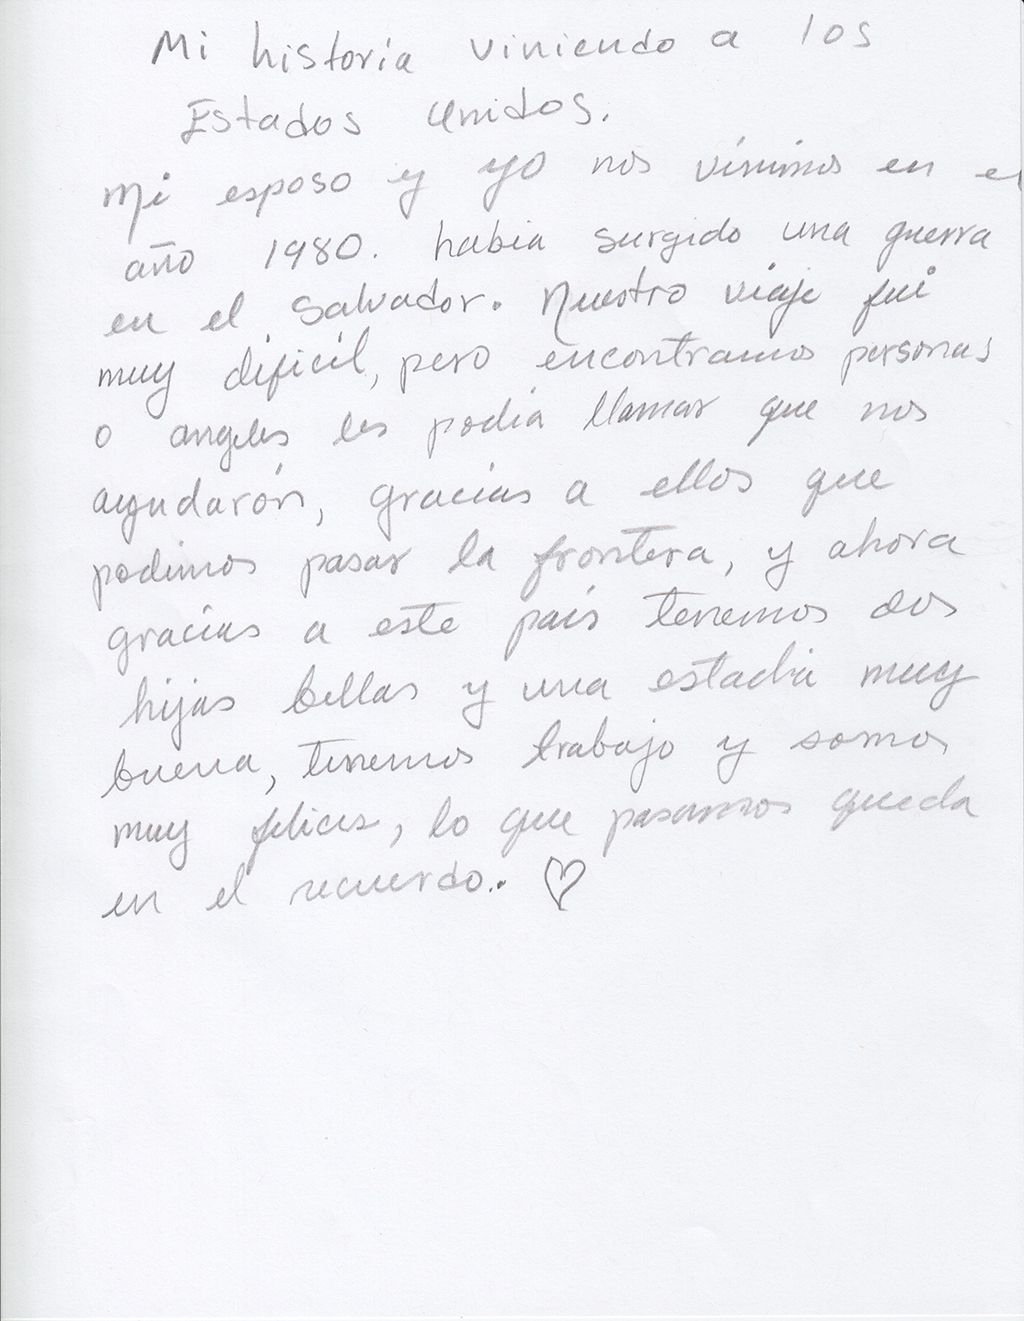 Mi historia viniendo a los
Estados Unidos.
Mi esposo y yo nos vinimos en el
año 1980. había surgido una guerra
en el Salvador. Nuestro viaje fui
muy dificíl, pero encontramos personas
o angeles les podía llamar que nos
ayudarón, gracias a ellos que
podimos pasar la frontera, y ahora
gracias a este país tenemos dos
hijas bellas y una estadía muy
buena, tenemos trabajo y somos
muy felices, lo que pasamos queda
en el recuerdo..